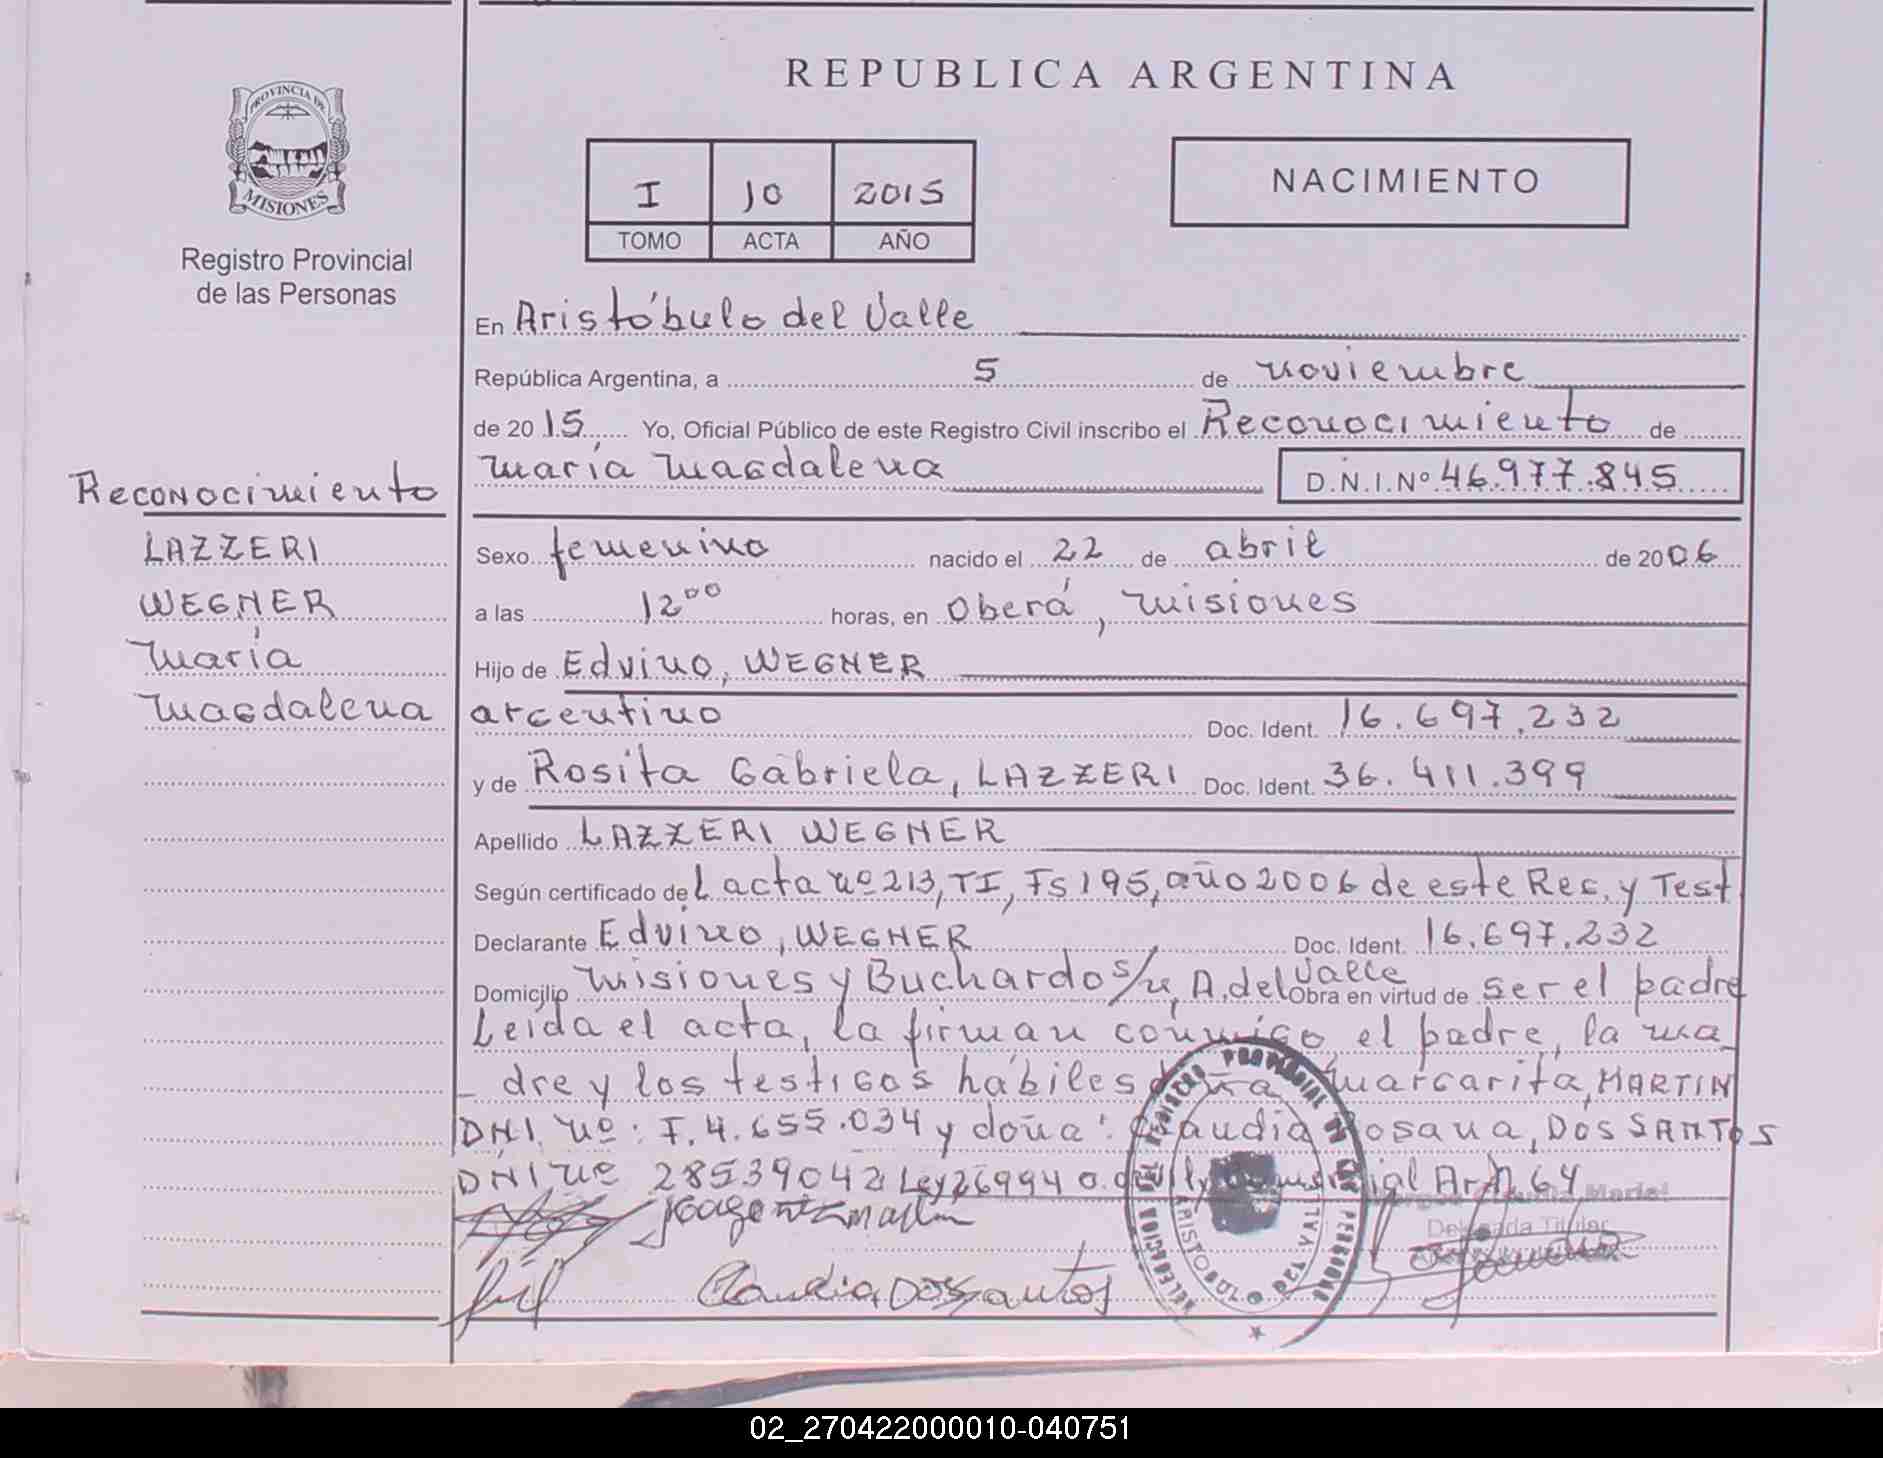 REPUBLICA ARGENTINA
PROVINCIA DE
MISIONES
Registro Provincial
de las Personas
I 10 2015
TOMO ACTA AÑO
NACIMIENTO
En Aristóbulo del Valle
República Argentina, a 5 de noviembre
de 2015 Yo, Oficial Público de este Registro Civil inscribo el Reconocimiento de
María Magdalena D.N.I.Nº 46.977.845
Reconocimiento
LAZZERI
WEGNER
María
Magdalena
Sexo femenino nacido el 22 de abril de 2006
a las 12⁰⁰ horas, en Oberá, Misiones
Hijo de Edvino, WEGNER
argentino Doc. Ident. 16.697.232
y de Rosita Gabriela, LAZZERI Doc. Ident. 36.411.399
Apellido LAZZERI WEGNER
Según certificado del acta nº 213, TI, Fs 195, año 2006 de este Reg. y Test
Declarante Edvino, WEGNER Doc. Ident. 16.697.232
Domicilio Misiones y Buchardo s/n, A. del Valle Obra en virtud de ser el padre
Leída el acta, la firman conmigo el padre, la ma_
_ dre y los testigos hábiles doña Margarita, MARTIN
DNI. nº: F. 4.655.034 y doña: Claudia Rosana, DOS SANTOS
DNI nº 28539042 Ley 26994 Art. 64
Delegada Titular
Claudia Dos Santos
DELEGACION DEL REGISTRO PROVINCIAL DE LAS PERSONAS
ARISTOBULO DEL VALLE
02_270422000010-040751